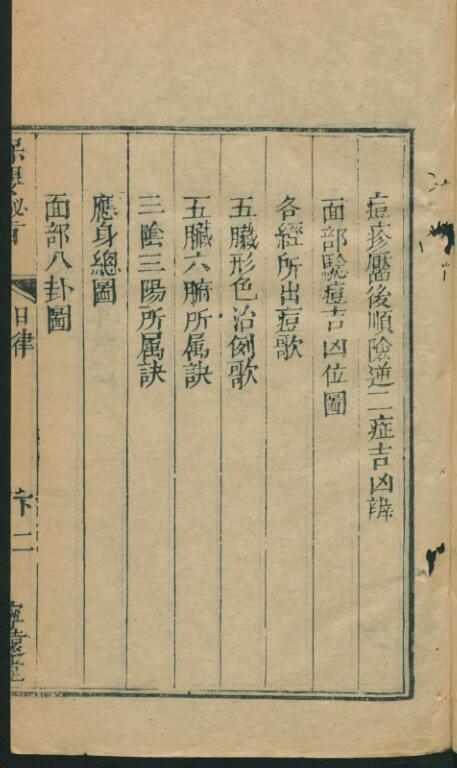 痘疹靨後順險逆二症吉凶辨
面部驗痘吉凶位圖
各經所出痘歌
五臟形色治例歌
五臟六腑所属訣
三陰三陽所属訣
應身總圖
面部八卦圖
目律
卞二